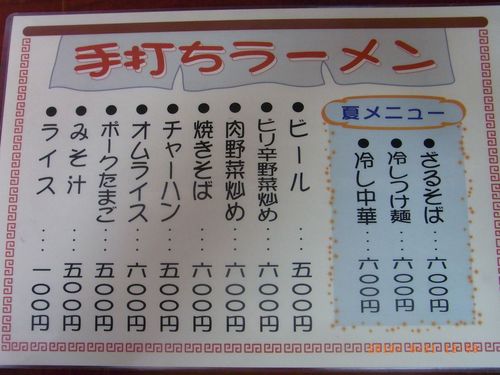 手打ちラーメン
夏メニュー
●ざるそば…六〇〇円
●冷しつけ麺…六〇〇円
●冷し中華…六〇〇円
●ビール…五〇〇円
●ピリ辛野菜炒め…六〇〇円
●肉野菜炒め…六〇〇円
●焼きそば…六〇〇円
●チャーハン…五〇〇円
●オムライス…六〇〇円
●ポークたまご…五〇〇円
●みそ汁…五〇〇円
●ライス…一〇〇円